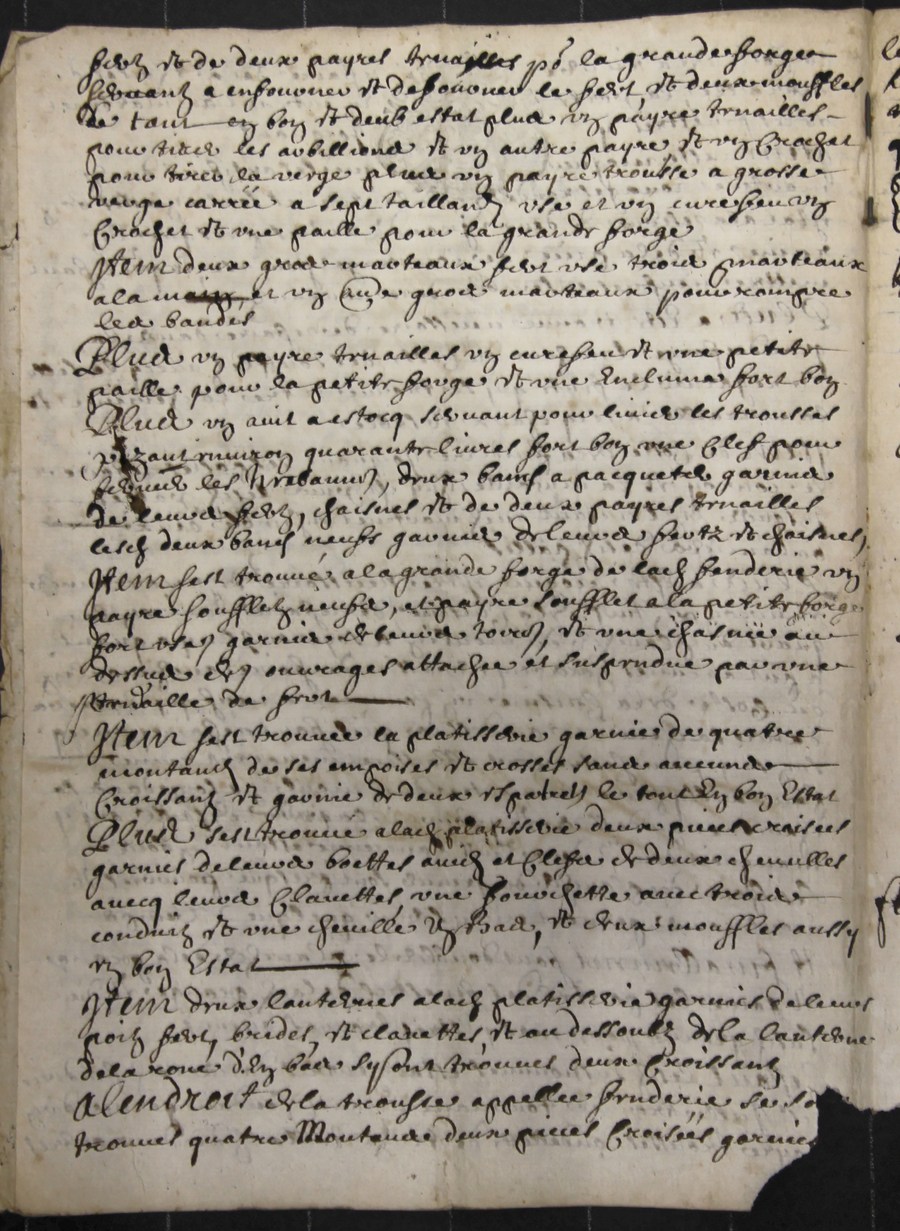 fertz et de deux payres tenailles po la grande forge
servantz a enfourner et defourner le fert et deux mouffles
le tout en bon et deub estat plus un payre tenailles
pour tirer les avbillions et un autre payre et un Crochet
pour tirer la verge plus un payre trousse a grosse
verge carrée a sept taillantz usé et un curefeu un
Crochet et une paille pour la grande forge
Item deux gros marteaux fert usé trois marteaux
a la main et un gros marteaux pour rompre
les bandes
Plus un payre tenailles un curefeu et une petite
paille pour la petite forge et une Enclume fort bon
Plus un aestocq servant pour les trousses
pezant environ quarante livres fort bon une Clef pour
les deux bancs a pacqueter garnis
de leurs fertz, chaisnes et de deux payres tenailles
lesd deux bancs neufs garnis de leurs fertz et chaisnes,
Item sest trouvé a la grande forge de lad fenderie un
payre souffletz neufs, et payre soufflet a la petite forge
fort usés garnis de leurs et une chasnie au
dessus des ouvrages attachee et suspendue par une
tenaille de fert
Item sest trouvee la platisserie garnie de quatre
montantz de ses empoises et crosses sans aucunes
Croissantz et garnie de deux espatres le tout En bon Estat
Plus sest trouvé a lad platisserie deux pieces croisees
garnies de leurs boettes et Clefs de deux chevilles
avecq leurs Clavettes, une fourchette avec trois
conduitz et une cheville En Bas, et deux mouffles aussy
en bon Estat
Item deux lanternes a lad platisserie garnies de leurs
poitz fertz, brides, et clavettes, et au dessoubz de la lanterne
de la roue d'En bas sy sont trouvees deux Croissantz
A lendroit de la trousse appellee fenderie se so
trouvees quatre Montans deux pieces Croisées garnies